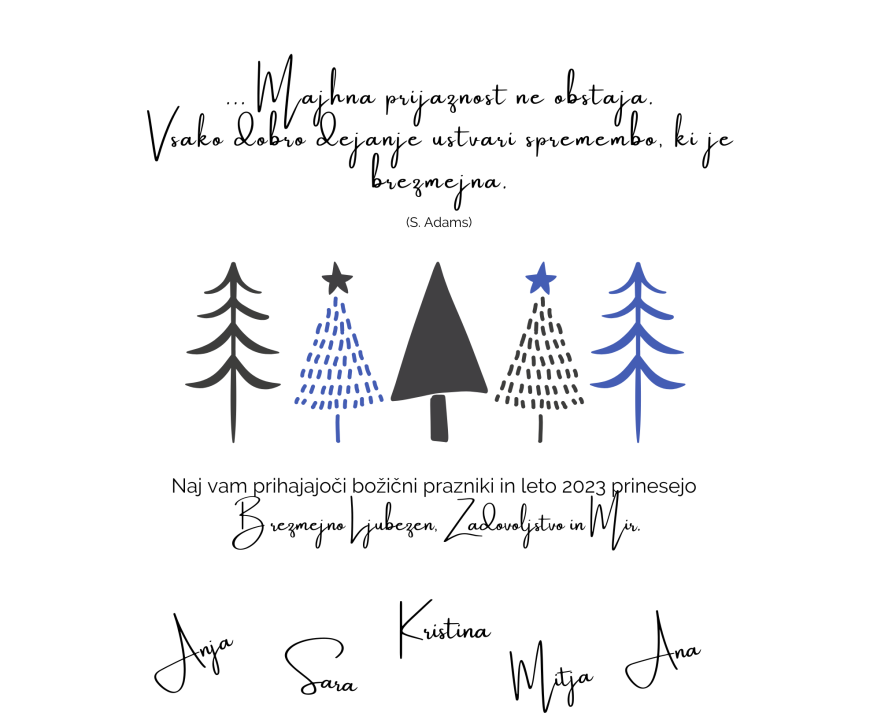 ... Majhna prijaznost ne obstaja.
Vsako dobro dejanje ustvari spremembo, ki je
brezmejna.
(S. Adams)
Naj vam prihajajoči božični prazniki in leto 2023 prinesejo
Brezmejno Ljubezen, Zadovoljstvo in Mir.
Anja
Sara
Kristina
Mitja
Ana